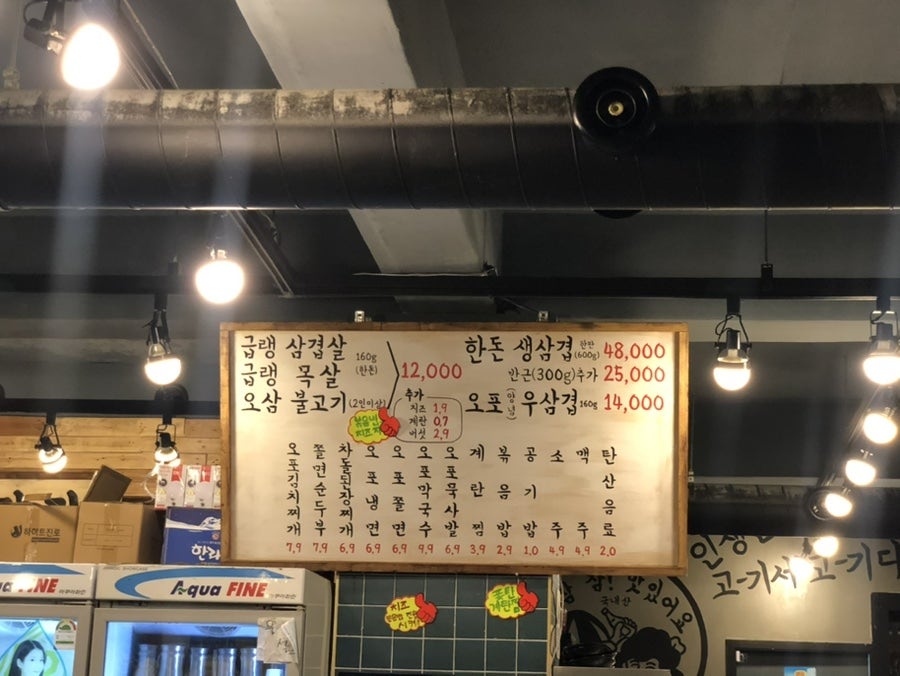 급랭 삼겹살 160g
급랭 목살 (한돈)
오삼 불고기 (2인이상)
12,000
추가
치즈 1,9
계란 0,7
버섯 2,9
한돈 생삼겹 한판 (600g) 48,000
반근(300g)추가 25,000
오포(양념) 우삼겹 160g 14,000
오포김치찌개 7,9
쫄면순두부 7,9
차돌된장찌개 6,9
오포냉면 6,9
오포쫄면 6,9
오포막국수 9,9
오포묵사발 6,9
계란찜 3,9
볶음밥 2,9
공기밥 1,0
소주 4,9
맥주 4,9
탄산음료 2,0
하이트진로
한라
Aqua FINE
Aqua FINE
치즈
인생
고기서 고기다
삼! 맛있어요
국내산